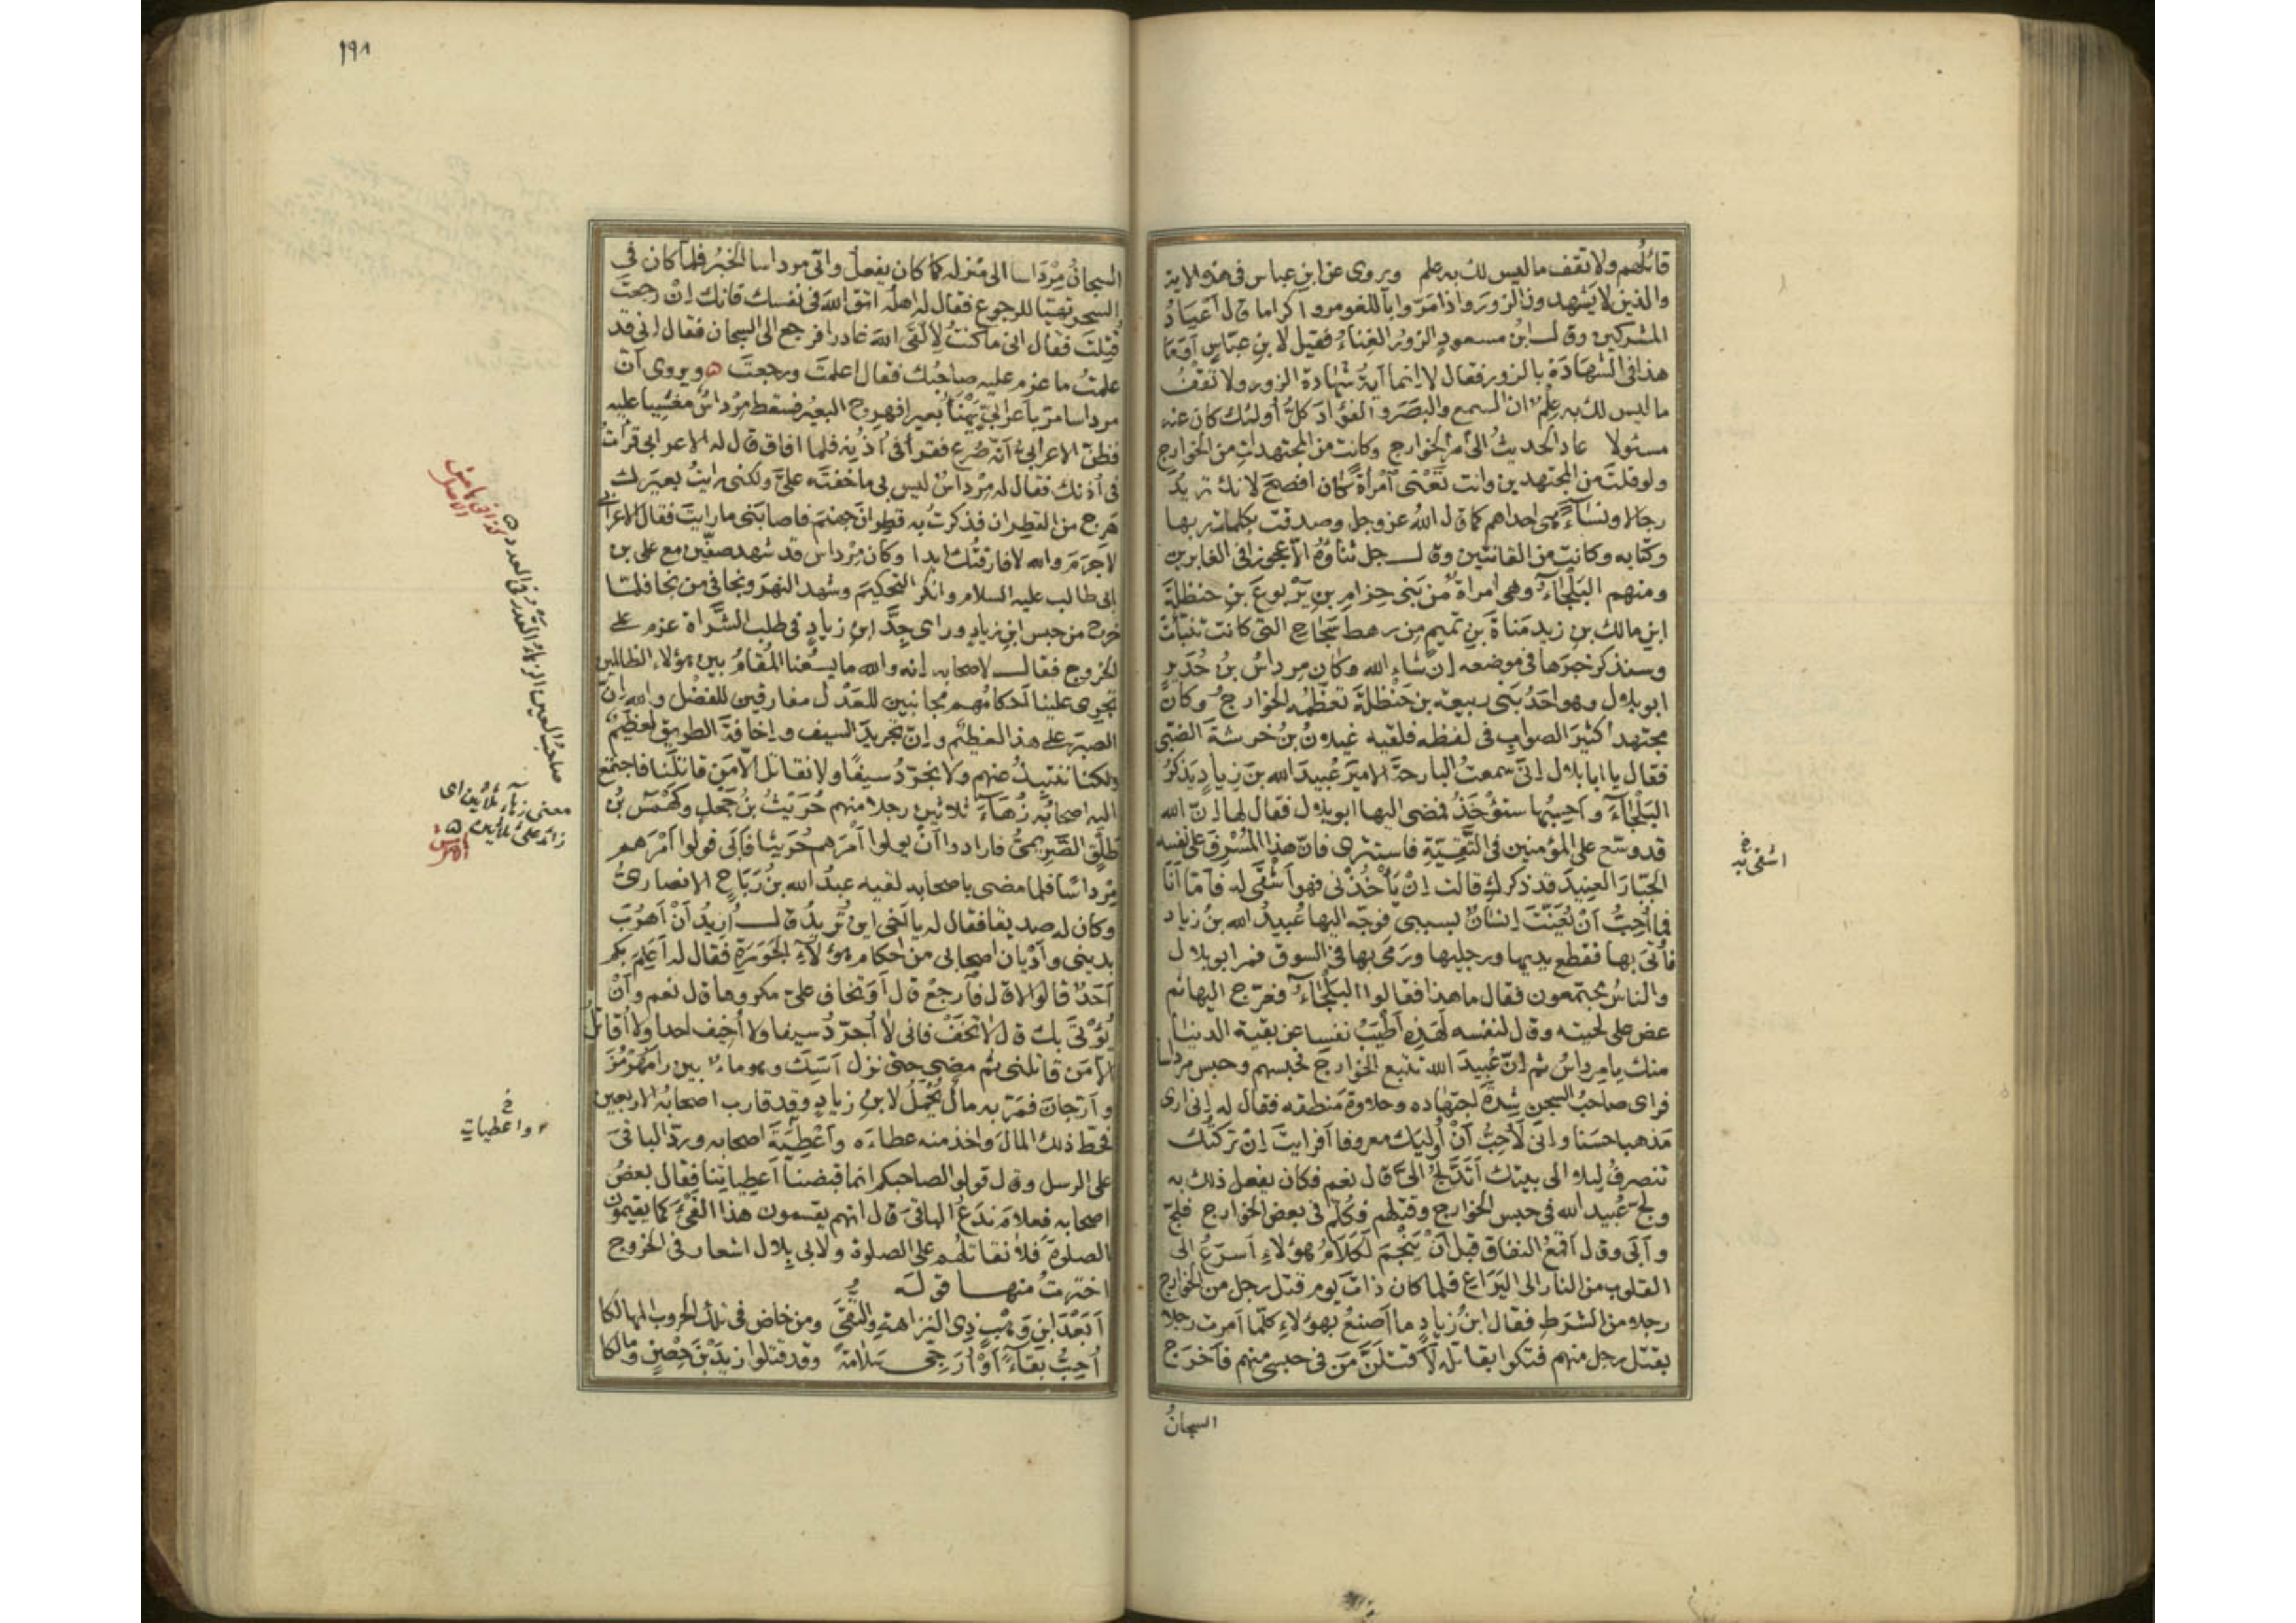 قائلهم ولا تقف ما ليس لك به علم ويروى عن ابن عباس فى هذه الاية
والذين لا يشهدون الزور واذا مروا باللغو مروا كراما قال أعياد
المشركين وقال ابن مسعود الزور الغناء فقيل لابن عباس أوما
هذا فى الشهادة بالزور فقال لا انما آية شهادة الزور ولا تقف
ما ليس لك به علم ان السمع والبصر والفؤاد كل أولئك كان عنه
مسئولا عاد الحديث الى أمر الخوارج وكانت من المجتهدات من الخوارج
ولو قلت من المجتهدين وانت تعنى آمرأة كان افصح لانك تريد
رجالا ونساء هى احداهم كما قال الله عز وجل وصدقت بكلمات ربها
وكتابه وكانت من القانتين وقال جل ثناؤه الا عجوزا فى الغابرين
ومنهم البلجاء وهى امرأة من بنى حزام بن يربوع بن حنظلة
ابن مالك بن زيد مناة بن تميم من رهط سجاح التى كانت تنبأت
وسنذكر خبرها فى موضعه إن شاء الله وكان مرداس بن حدير
ابو بلال وهو احد بنى ربيعة بن حنظلة تعظمه الخوارج وكان
مجتهدا كثير الصواب فى لفظه فلقيه غيلان بن خرشة الضبى
فقال يا ابا بلال انى سمعت البارحة الامير عبيد الله بن زياد يذكر
البلجاء و أحسبها ستؤخذ فمضى اليها ابو بلال فقال لها ان الله
قد وسع على المؤمنين فى التقية فاستترى فان هذا المسرف على نفسه
الجبار العنيد قد ذكرك قالت إن يأخذنى فهو أشقى له فاما أنا
فما أحب أن يعنت انسان بسببى فوجه اليها عبيد الله بن زياد
فأتى بها فقطع يديها ورجليها ورمى بها فى السوق فمر ابو بلال
والناس مجتمعون فقال ما هذا فقالوا البلجاء فعرج اليها ثم
عض على لحيته وقال لنفسه لهذه أطيب نفسا عن بقية الدنيا
منك يا مرداس ثم إن عبيد الله تتبع الخوارج فحبسهم وحبس مرداسا
فراى صاحب السجن شدة اجتهاده وحلاوة منطقه فقال له إنى ارى
مذهبا حسنا وانى لأحب أن أوليك معروفا أفرايت ان تركتك
تنصرف ليلا الى بيتك أتدلج الى قال نعم فكان يفعل ذلك به
ولج عبيد الله فى حبس الخوارج وقتلهم فكلم فى بعض الخوارج فلج
وأبى وقال أقمع النفاق قبل أن ينجم لكلام هؤلاء أسرع الى
القلوب من النار الى اليراع فلما كان ذات يوم قتل رجل من الخوارج
رجلا من الشرط فقال ابن زياد ما أصنع بهؤلاء كلما أمرت رجلا
بقتل رجل منهم فتكوا بقاتله لأقتلن من فى حبسى منهم فأخرج
السجان
اشقى به خ
١٩٨
السجان مرداسا الى منزله كما كان يفعل واتى مرداسا الخبر فلما كان فى
السحر تهيا للرجوع فقال له اهله اتق الله فى نفسك فانك إن رجعت
قتلت فقال انى ما كنت لألقى الله غادرا فرجع الى السجان فقال انى قد
علمت ما عزم عليه صاحبك فقال اعلمت ورجعت ويروى أن
مرداسا مر بأعرابى يهنأ بعيرا فهرج البعير فسقط مرداس مغشيا عليه
فظن الاعرابى أنه صرع فقرأ فى أذنه فلما افاق قال له الاعرابى قرأت
فى أذنك فقال له مرداس ليس بى ما خفته على ولكنى رايت بعيرك
هرج من القطران فذكرت به قطران جهنم فاصابنى ما رايت فقال الاعرابى
لا جرم والله لا فارقتك ابدا وكان مرداس قد شهد صفين مع على بن
ابى طالب عليه السلام وانكر التحكيم وشهد النهر ونجا فى من نجا فلما
خرج من حبس ابن زياد وراى جد ابن زياد فى طلب الشراة عزم على
الخروج فقال لاصحابه إنه والله ما يسعنا المقام بين هؤلاء الظالمين
تجرى علينا أحكامهم مجانبين للعدل مفارقين للفضل والله إن
الصبر على هذا لعظيم وإن تجريد السيف و إخافة الطريق لعظيم
ولكنا ننتبذ عنهم ولا نجرد سيفا ولا نقاتل الا من قاتلنا فاجتمع
اليه اصحابه زهاء ثلاثين رجلا منهم حريث بن جحل وكهمس بن
طلق الصريمى فارادوا أن يولوا أمرهم حريثا فأبى فولوا أمرهم
مرداسا فلما مضى باصحابه لقيه عبد الله بن رباح الانصارى
وكان له صديقا فقال له يا أخى اين تريد قال أريد أن أهرب
بدينى وأديان اصحابى من احكام هؤلاء الجورة فقال له أعلم بكم
أحد قالوا لا قال فارجع قال أو تخاف على مكروها قال نعم وأن
يؤتى بك قال لا تخف فانى لا أجرد سيفا ولا أخيف احدا ولا أقاتل
الا من قاتلنى ثم مضى حتى نزل آسك وهو ماء بين رامهرمز
وأرجان فمر به مال يحمل لابن زياد وقد قارب اصحابه الاربعين
فحط ذلك المال واخذ منه عطاءه وأعطية اصحابه ورد الباقى
على الرسل وقال قولوا لصاحبكم انما قبضنا أعطياتنا فقال بعض
اصحابه فعلام ندع الباقى قال انهم يقسمون هذا الفئ كما يقيمون
الصلوة فلا نقاتلهم على الصلوة ولابى بلال اشعار فى الخروج
اخترت منها قوله
أبعد ابن وهب ذى النزاهة والتقى ومن خاض فى تلك الحروب المهالكا
أحب بقاء أو أرجى سلامة وقد قتلوا زيد بن حصن ومالكا
صاحب العين الزهاء القدر فى العدد
كذا فى هامش الاصل
معنى زهاء ثلاثين اى
زائد على ثلاثين
واعطيات خ